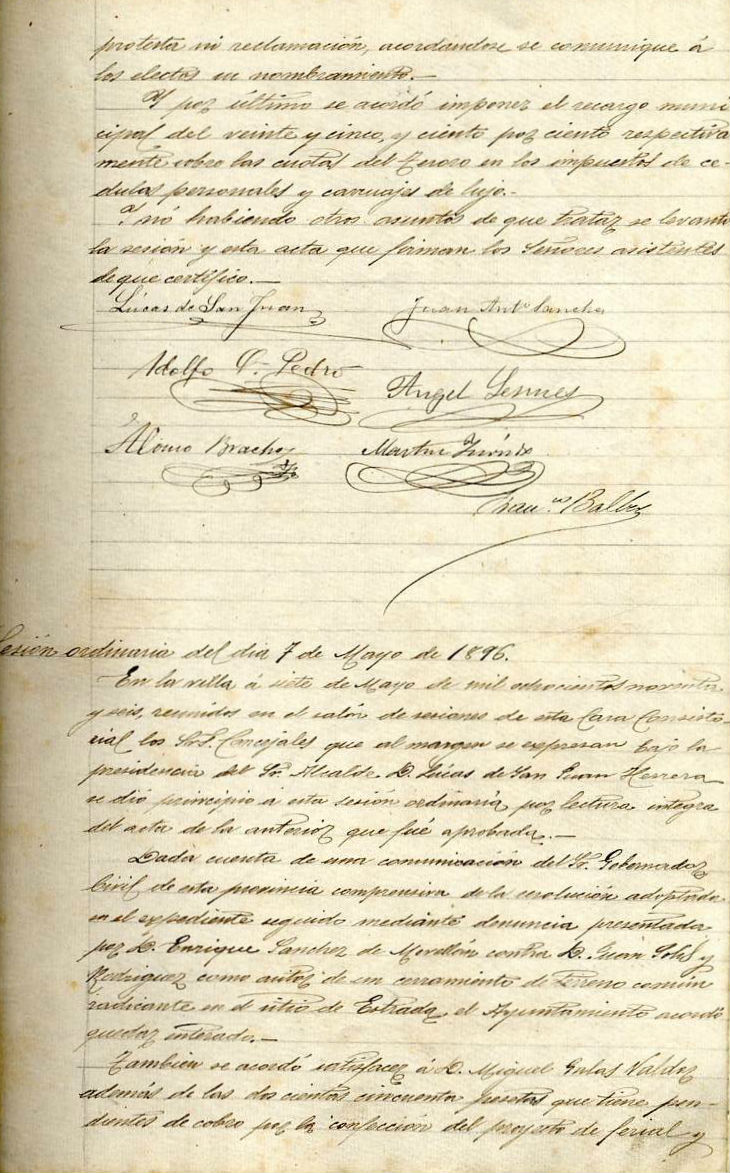 protesta ni reclamación, acordandose se comunique á
los electos su nombramiento.—
Y por último se acordó imponer el recargo muni
cipal del veinte y cinco, y ciento por ciento respectiva
mente sobre las cuotas del Tesoro en los impuestos de ce-
dulas personales y carruajes de lujo.-
Y nó habiendo otros asuntos de que tratar se levantó
la sesión y esta acta que firman los Señores asistentes
de que certifico.—
Lúcas de San Juan
Juan Antº Sanchez
Adolfo
Pedro
Angel
Alonso
Martin
Franco
Sesión ordinaria del dia 7 de Mayo de 1896.
En la villa á siete de Mayo de mil ochocientos noventa
y seis, reunidos en el salón de sesiones de esta Casa Consisto-
rial los Sres. Concejales que al margen se expresan bajo la
presidencia del Sr. Alcalde D. Lúcas de San Juan Herrera
se dió principio á esta sesión ordinaria por lectura integra
del acta de la anterior que fué aprobada.—
Dada cuenta de una comunicación del Sr. Gobernador
Civil de esta provincia comprensiva de la resolución adoptada
en el expediente seguido mediante denuncia presentada
por D. Enrique Sanchez de Movellán contra D. Juan
y
Rodriguez como autor de un cerramiento de terreno común
radicante en el sitio de Estrada, el Ayuntamiento acordó
quedar enterado.—
Tambien se acordó satisfacer á D. Miguel
además de las dos cientas cincuenta pesetas que tiene pen-
dientes de cobro por la confección del proyecto de ferial y